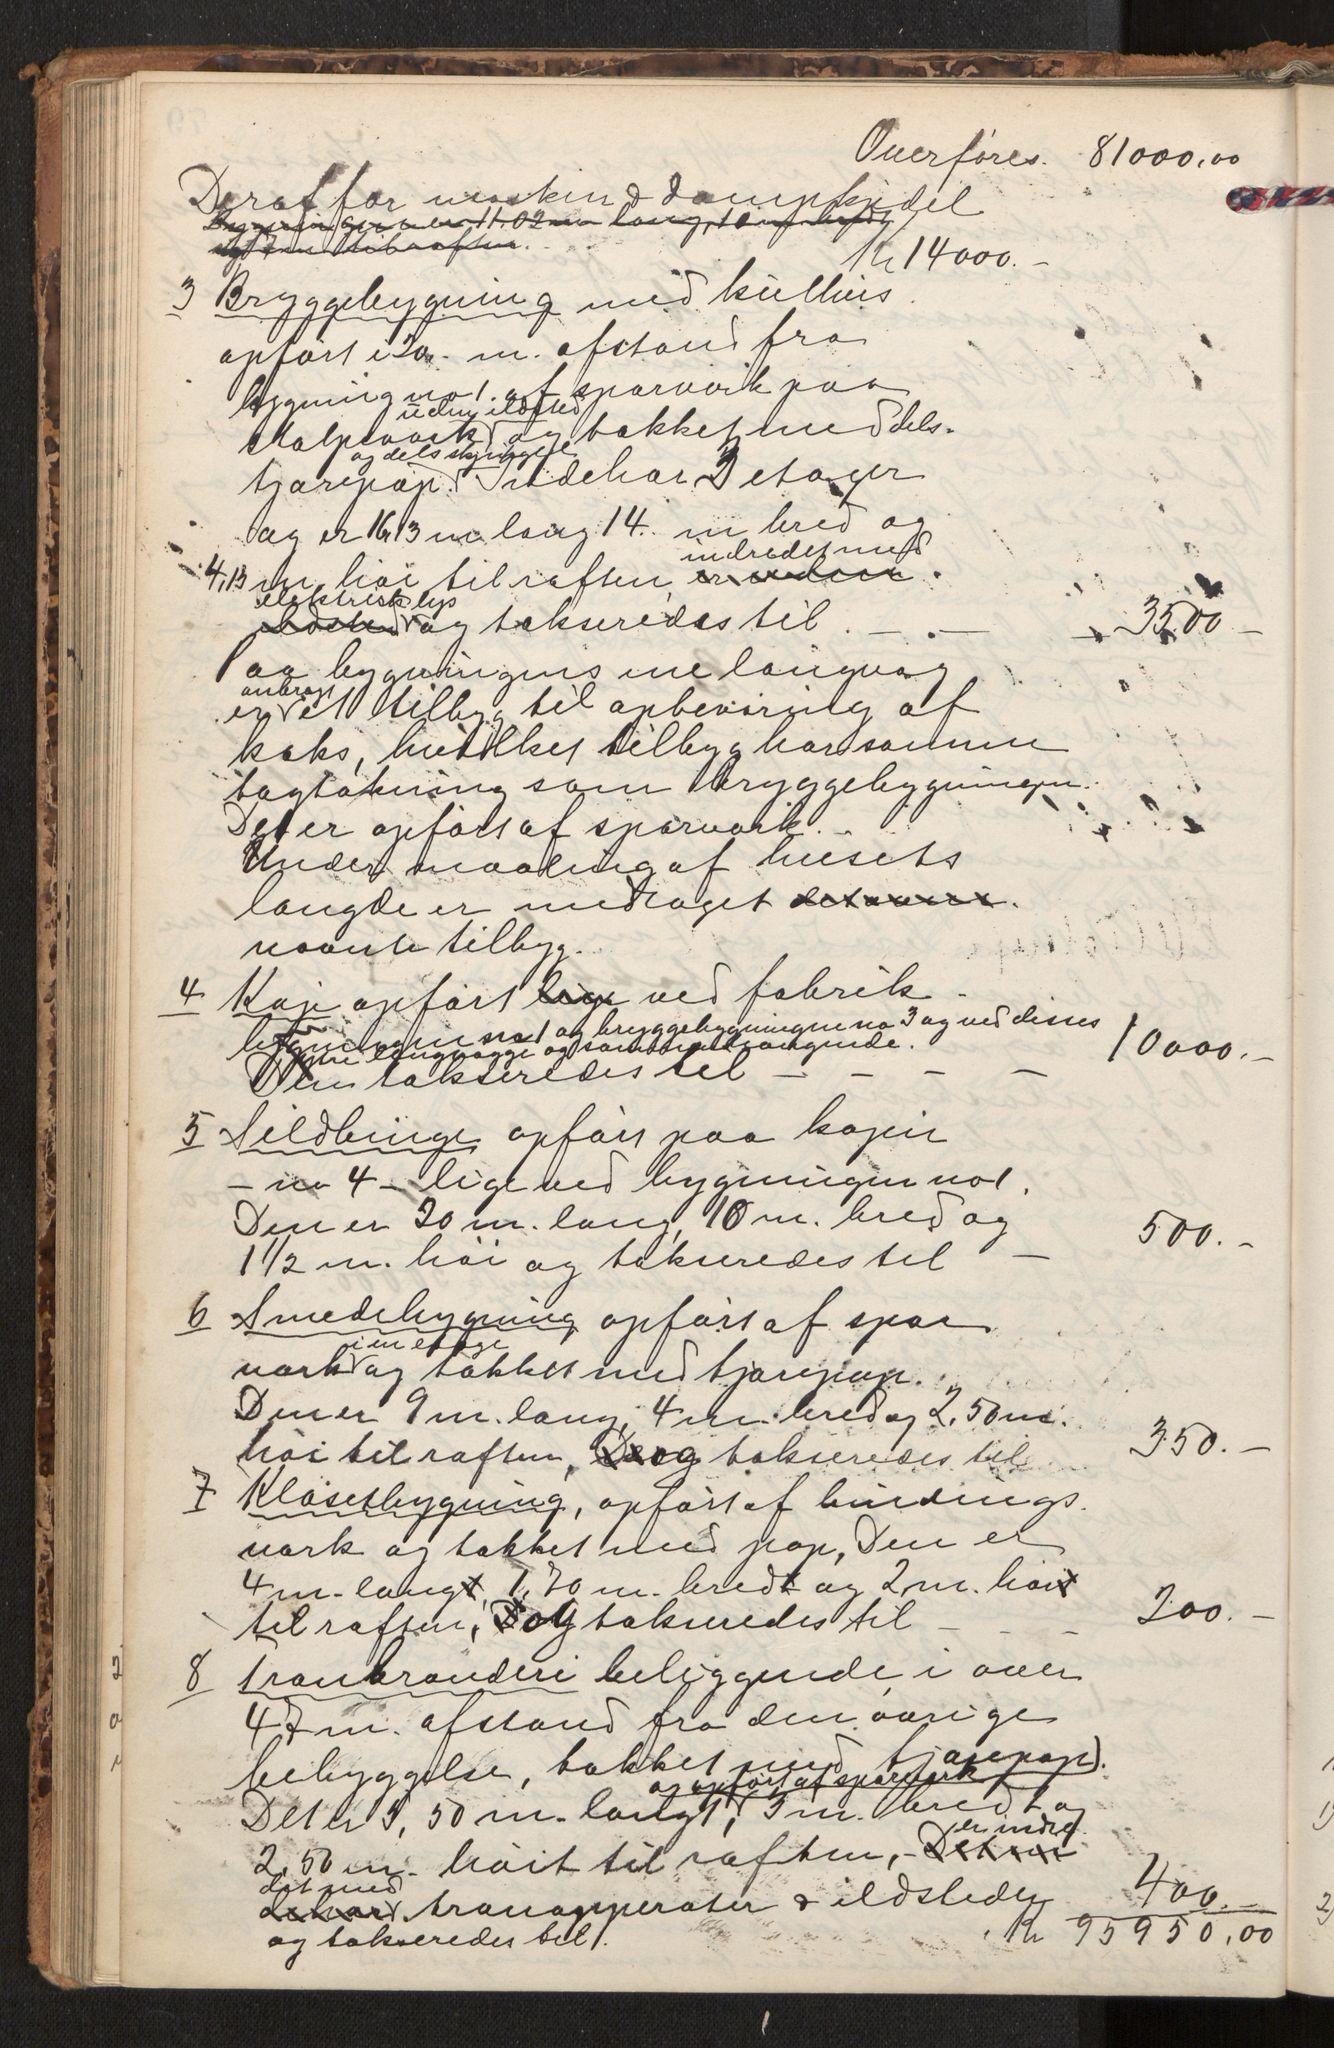 Overføres. 81000,00
Deraf for maskin & dampkjedel
Bygningen er 11,02 m lang, 10 m bred
Kr 14000.-
3 Bryggebygning med kulhus
opført i 20 m. afstand fra
bygning no 1. af sparværk paa
uden ildsted
stolpeværk og tækket med dels-
og dels skjingel
tjærepap. Indehar 3 etager
og er 16,13 m lang 14. m bred og
indredet med
4,13 m. høi til raften er uden.
elektrisk lys
ildsted og takseredes til . - . - 3500 -
Paa bygningens ene langvæg
anbragt
er et tilbyg til opbevaring af
koks, hvilket tilbyg har samme
tagtækning som bryggebygningen.
Det er opført af sparværk. -
Under maaling af husets
længde er medtaget
nævnte tilbyg.
4 Kaje opført lige ved fabrik-
bygningen no 1 og bryggebygningen no 3 og ved disses
ene langvægge og sammenhængende.
Den takseredes til - - - - 10000.-
5 Sildbinge opført paa kajen
- no 4 - lige ved bygningen no 1.
Den er 20 m. lang, 10 m. bred og
1 1/2 m. høi og takseredes til - 500.-
6 Smedebygning opført af spar
i en etage
værk og tækket med tjærepap.
Den er 9 m. lang, 4 m. bred og 2,50 m.
høi til raften, og takseredes til 350.-
7 Klosetbygning, opført af bindings-
værk og tækket med pap, Den er
4 m. langt, 1,70 m. bredt og 2 m. høit
til raften, og takseredes til - - - 200.-
8 Tranbrænderi beliggende i over
47 m. afstand fra den øvrige
bebyggelse, tækket med tjærepap.
og opført af sparværk
Det er 3,50 m. langt, 3 m. bredt og
er indre
2,50 m. høit til raften, -
det med
tranapperater & ildsteder 400.-
og takseredes til. Kr 95950,00